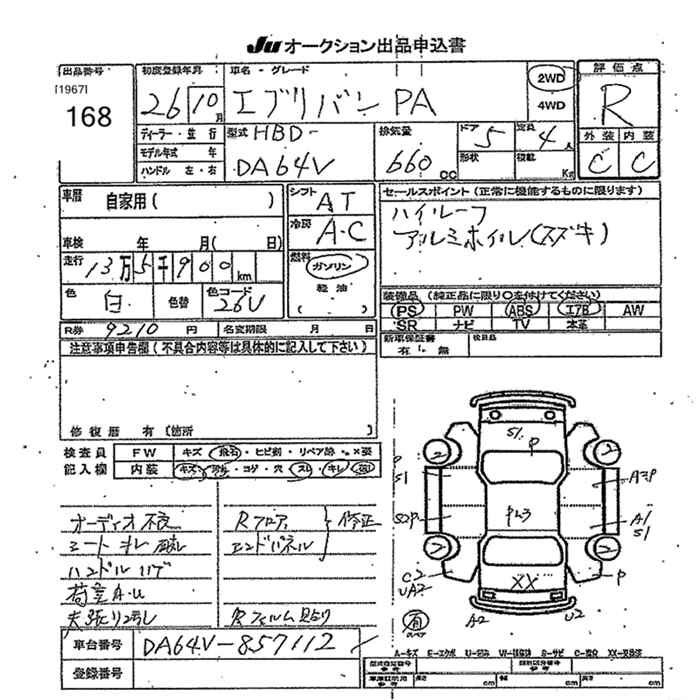 Ju オークション出品申込書
出品番号
[1967]
168
初度登録年月
26 10月
車名・グレード
エブリバン PA
2WD
4WD
評価点
R
外装 内装
C C
ディーラー・並行
モデル年式 年
ハンドル 左・右
型式 HBD-
DA64V
排気量
660 CC
ドア 5
定員 4人
形状
積載 Kg
車歴 自家用 ( )
車検 年 月( 日)
走行 13万5千900km
色 白
色替
色コード 26V
シフト AT
冷房 A・C
燃料 ガソリン
軽油
( )
セールスポイント(正常に機能するものに限ります)
ハイルーフ
アルミホイル(スズキ)
装備品(純正品に限り○を付けてください)
PS PW ABS エアB AW
SR ナビ TV 本革
R券 9210 円
名変期限 月 日
新車保証書
有・無
欠品名
注意事項申告欄(不具合内容等は具体的に記入して下さい)
修復歴 有(箇所
検査員
記入欄
FW キズ・飛石・ヒビ割・リペア跡・×要
内装 キズ・汚れ・コゲ・穴・スレ・キレ・
オーディオ不良
シートキレ 破れ
ハンドルハゲ
荷室A・U
天張り
Rフロア
エンドパネル
修正
車台番号 DA64V-857112
登録番号
S1
P
P
S1
A3P
A1
S1
P
C2
UA2
XX
A2
U2
2
2
2
2
有
スペア
A-キズ E-エクボ U-凹み W-補修跡 S-サビ C-腐食 XX-交換済
型式指定番号
参考
類別区分番号
参考
車庫証明用
参考
長さ cm
幅 cm
高さ cm